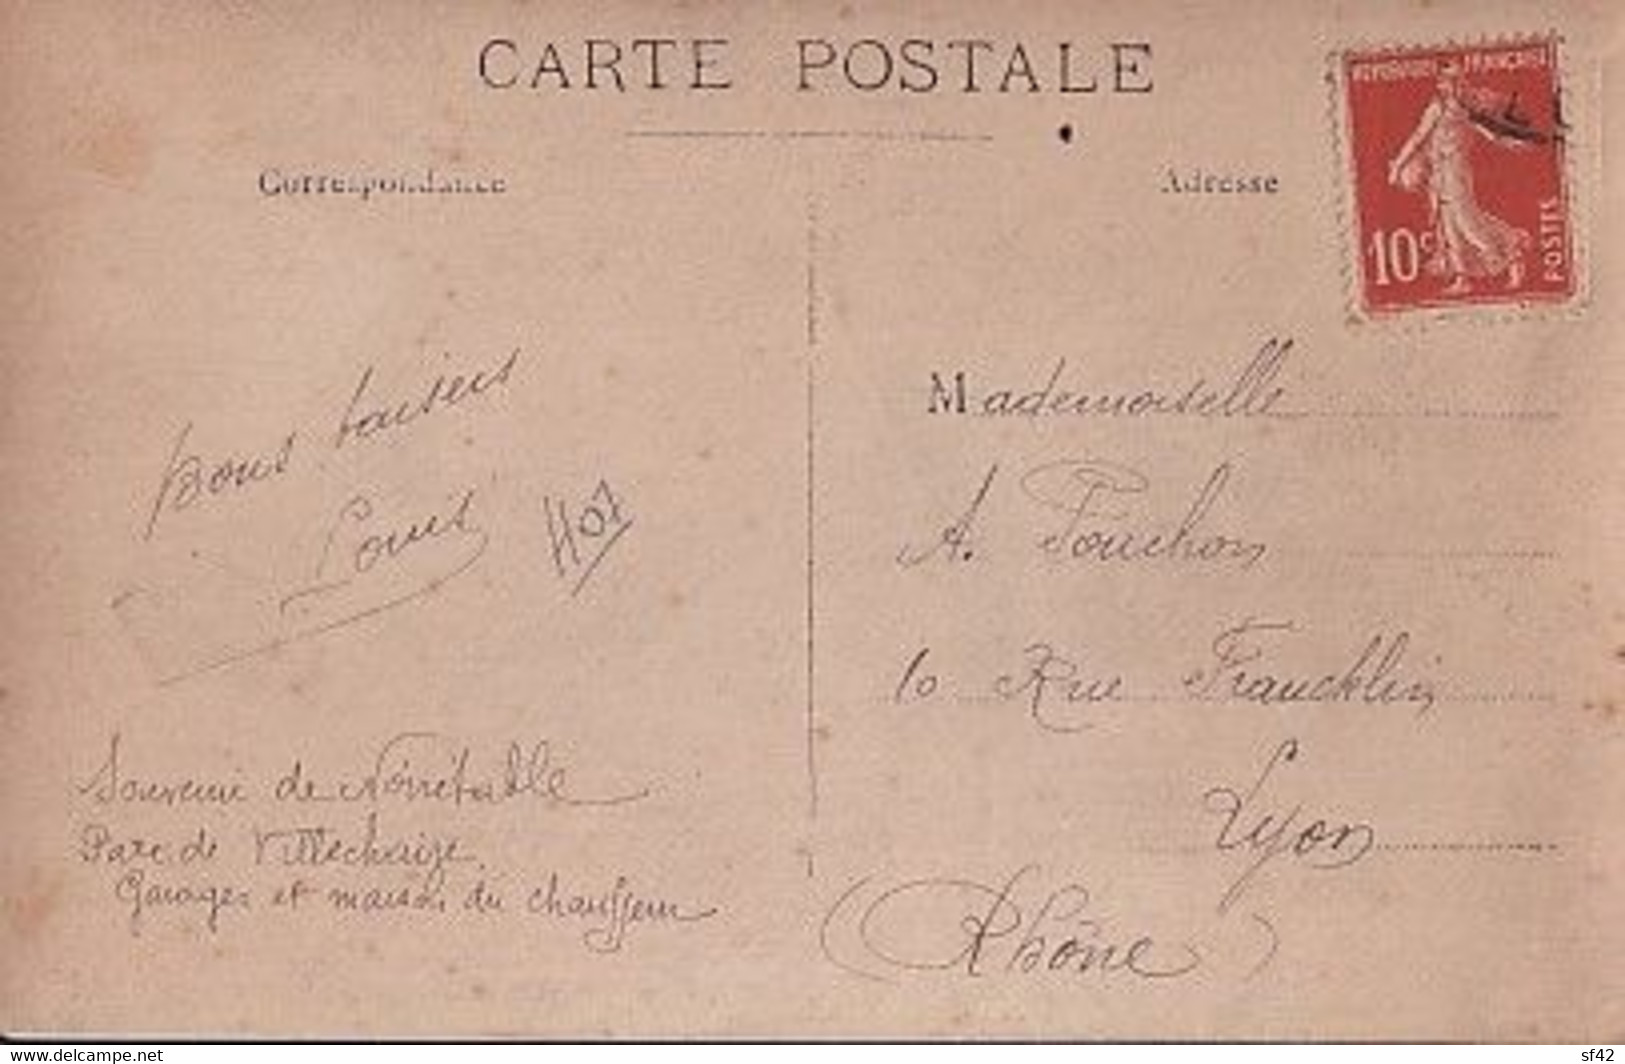 CARTE POSTALE
Correspondance
Adresse
REPUBLIQUE FRANÇAISE
10c
POSTES
bons baisers
Louis
Mademoiselle
A. Fouchon
10 Rue Francklin
Lyon
(Rhône)
Souvenir de Noirétable
Parc de Villechaize
Garages et maison du chauffeur
www.delcampe.net
sf42